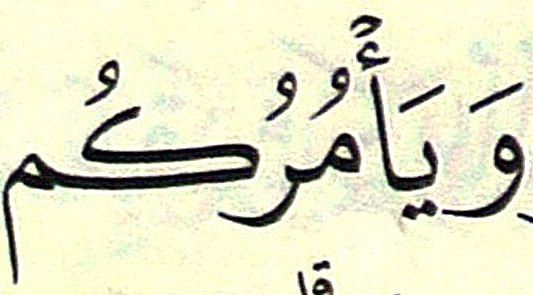 وَيَأْمُرُكُم